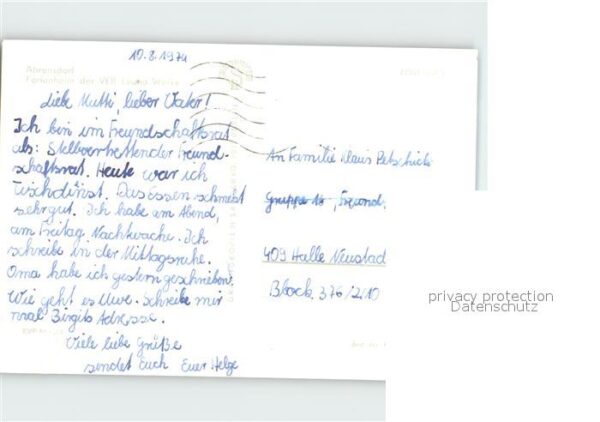 10.8.1974
Ahrenshoop
Ferienheim der VEB Leuna-Werke
Liebe Mutti, lieber Vater!
Ich bin im Freundschaftsrat
als: Stellvertrettender Freund-
schaftsrat. Heute war ich
Tischdinst. Das Essen schmekt
sehr gut. Ich habe am Abend,
am Freitag Nachtwache. Ich
schreibe in der Mittagsruhe.
Oma habe ich gestern geschrieben.
Wie geht es Uwe. Schreibe mir
mal Birgits Adresse.
Viele liebe Grüße
sendet Euch Euer Helge
An Familie Klaus Petschick
Gruppe 14, Freund.
409 Halle Neustad
Block 376/2/10
privacy protection
Datenschutz